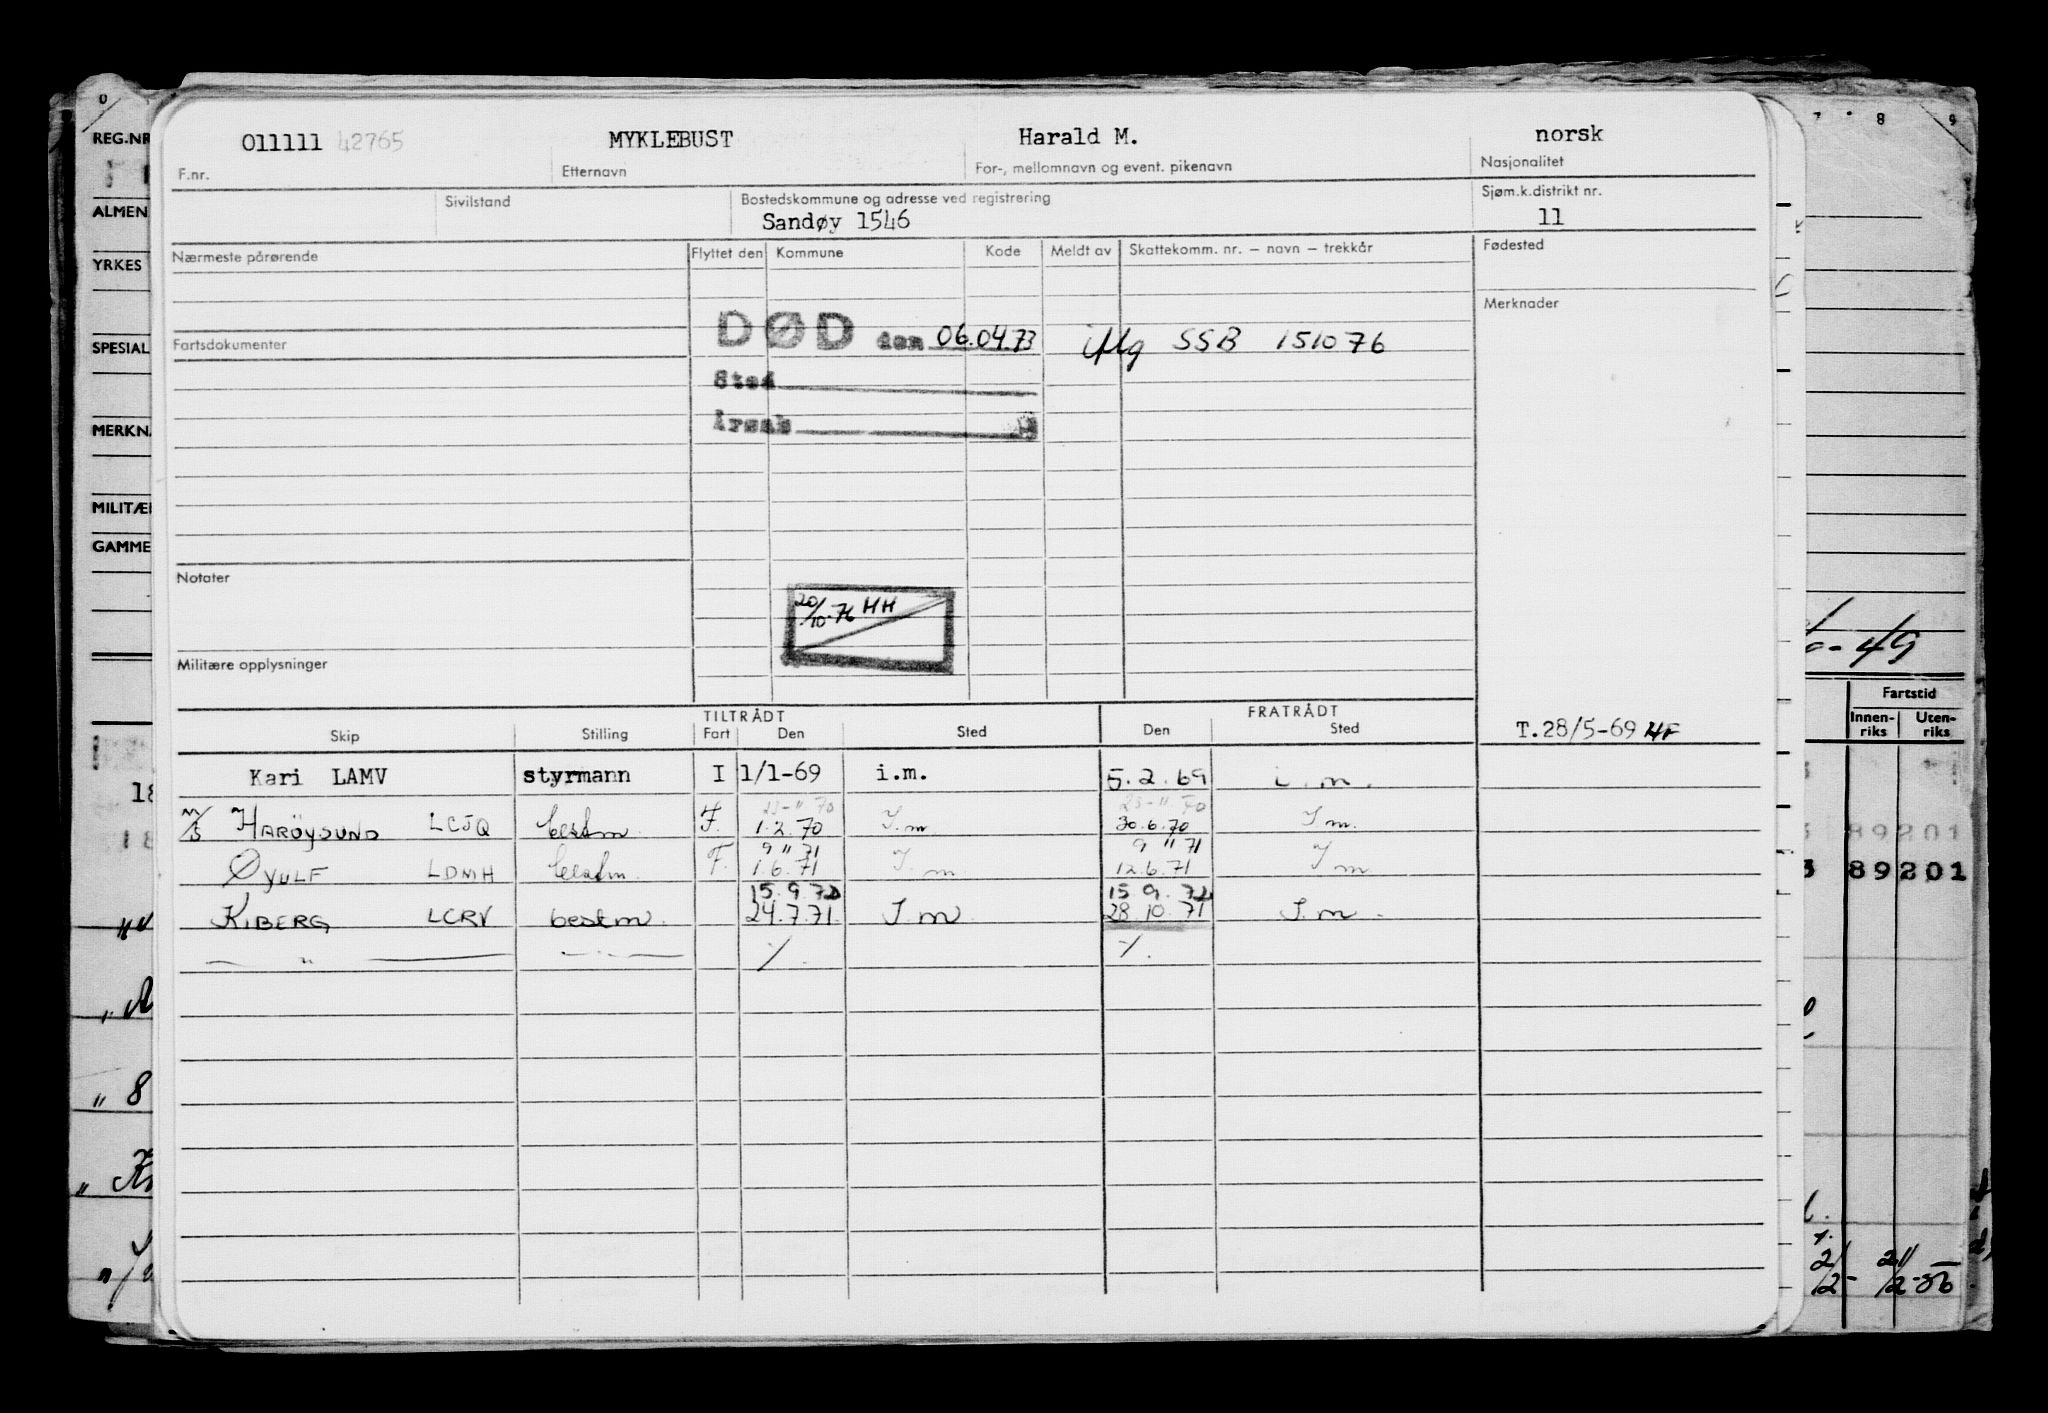 011111 42765 MYKLEBUST Harald M. norsk
F.nr. Etternavn For-, mellomnavn og event. pikenavn Nasjonalitet
Sivilstand Bostedskommune og adresse ved registrering Sjøm.k.distrikt nr.
Sandøy 1546 11
Nærmeste pårørende Flyttet den Kommune Kode Meldt av Skattekomm. nr. — navn — trekkår Fødested
Merknader
Fartsdokumenter DØD den 06.04.73 iflg SSB 151076
Sted
Årsak
Notater
20/10-76 HH
Militære opplysninger
TILTRÅDT FRATRÅDT
Skip Stilling Fart Den Sted Den Sted T.28/5-69 HF
Kari LAMV styrmann I 1/1-69 i.m. 5.2.69 i.m.
23-11 70 23-11 70
M/S HARØYSUND LCJQ bestm. F. 1.2.70 I.m 30.6.70 I m.
9 11 71 9 11 71
ØYULF LDMH bestm. F. 1.6.71 I.m 12.6.71 I m
15.9.72 15 9.72
KIBERG LCRV bestm. 24.7.71 I m 28.10.71 I.m.
— " —
REG.NR
ALMEN
YRKES
SPESIAL
MERKN
MILITÆ
GAMME
7 8 9
- 49
Fartstid
Innen-riks Uten-riks
89201
89201
18
18
" 8
2/2- 21/2-56